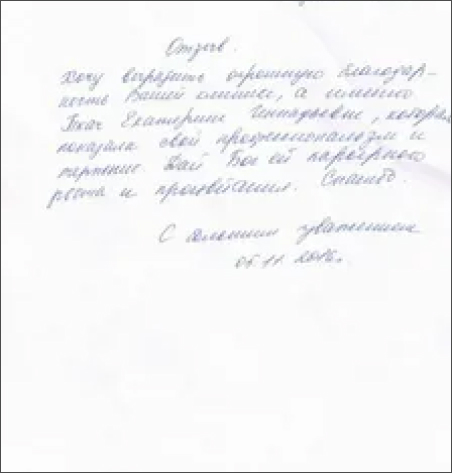 Отзыв.
Хочу выразить огромную благодар-
ность Вашей клинике, а именно
Ткач Екатерине Геннадьевне, которая
показала свой профессионализм и
терпение. Дай Бог ей карьерного
роста и процветания. Спасибо.
С уважением
05.11.2016г.